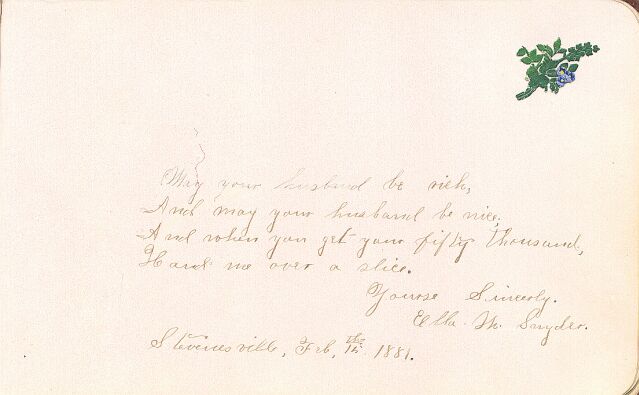 May your husband be rich,
And may your husband be nice,
And when you get your fifty thousand,
Hand me over a slice.
Yourse Sincerly.
Ella M. Snyder.
Stevensville, Feb, 1881.